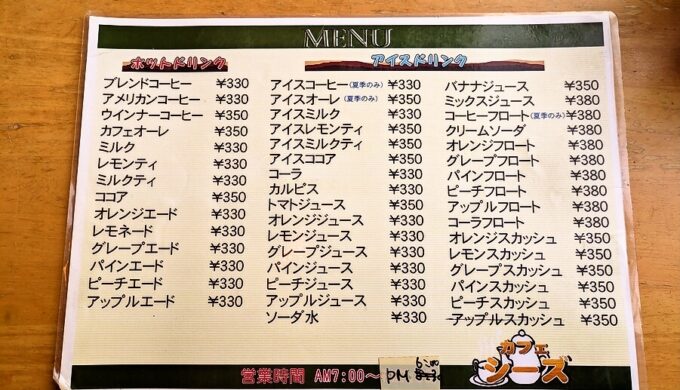 MENU
ホットドリンク
ブレンドコーヒー ¥330
アメリカンコーヒー ¥330
ウインナーコーヒー ¥350
カフェオーレ ¥350
ミルク ¥330
レモンティ ¥330
ミルクティ ¥330
ココア ¥350
オレンジエード ¥330
レモネード ¥330
グレープエード ¥330
パインエード ¥330
ピーチエード ¥330
アップルエード ¥330
アイスドリンク
アイスコーヒー(夏季のみ) ¥330
アイスオーレ(夏季のみ) ¥350
アイスミルク ¥330
アイスレモンティ ¥350
アイスミルクティ ¥350
アイスココア ¥350
コーラ ¥330
カルピス ¥330
トマトジュース ¥350
オレンジジュース ¥330
レモンジュース ¥330
グレープジュース ¥330
パインジュース ¥330
ピーチジュース ¥330
アップルジュース ¥330
ソーダ水 ¥330
バナナジュース ¥350
ミックスジュース ¥380
コーヒーフロート(夏季のみ) ¥380
クリームソーダ ¥380
オレンジフロート ¥380
グレープフロート ¥380
パインフロート ¥380
ピーチフロート ¥380
アップルフロート ¥380
コーラフロート ¥380
オレンジスカッシュ ¥350
レモンスカッシュ ¥350
グレープスカッシュ ¥350
パインスカッシュ ¥350
ピーチスカッシュ ¥350
アップルスカッシュ ¥350
カフェ
シーズ
営業時間 AM7:00〜PM 6:00